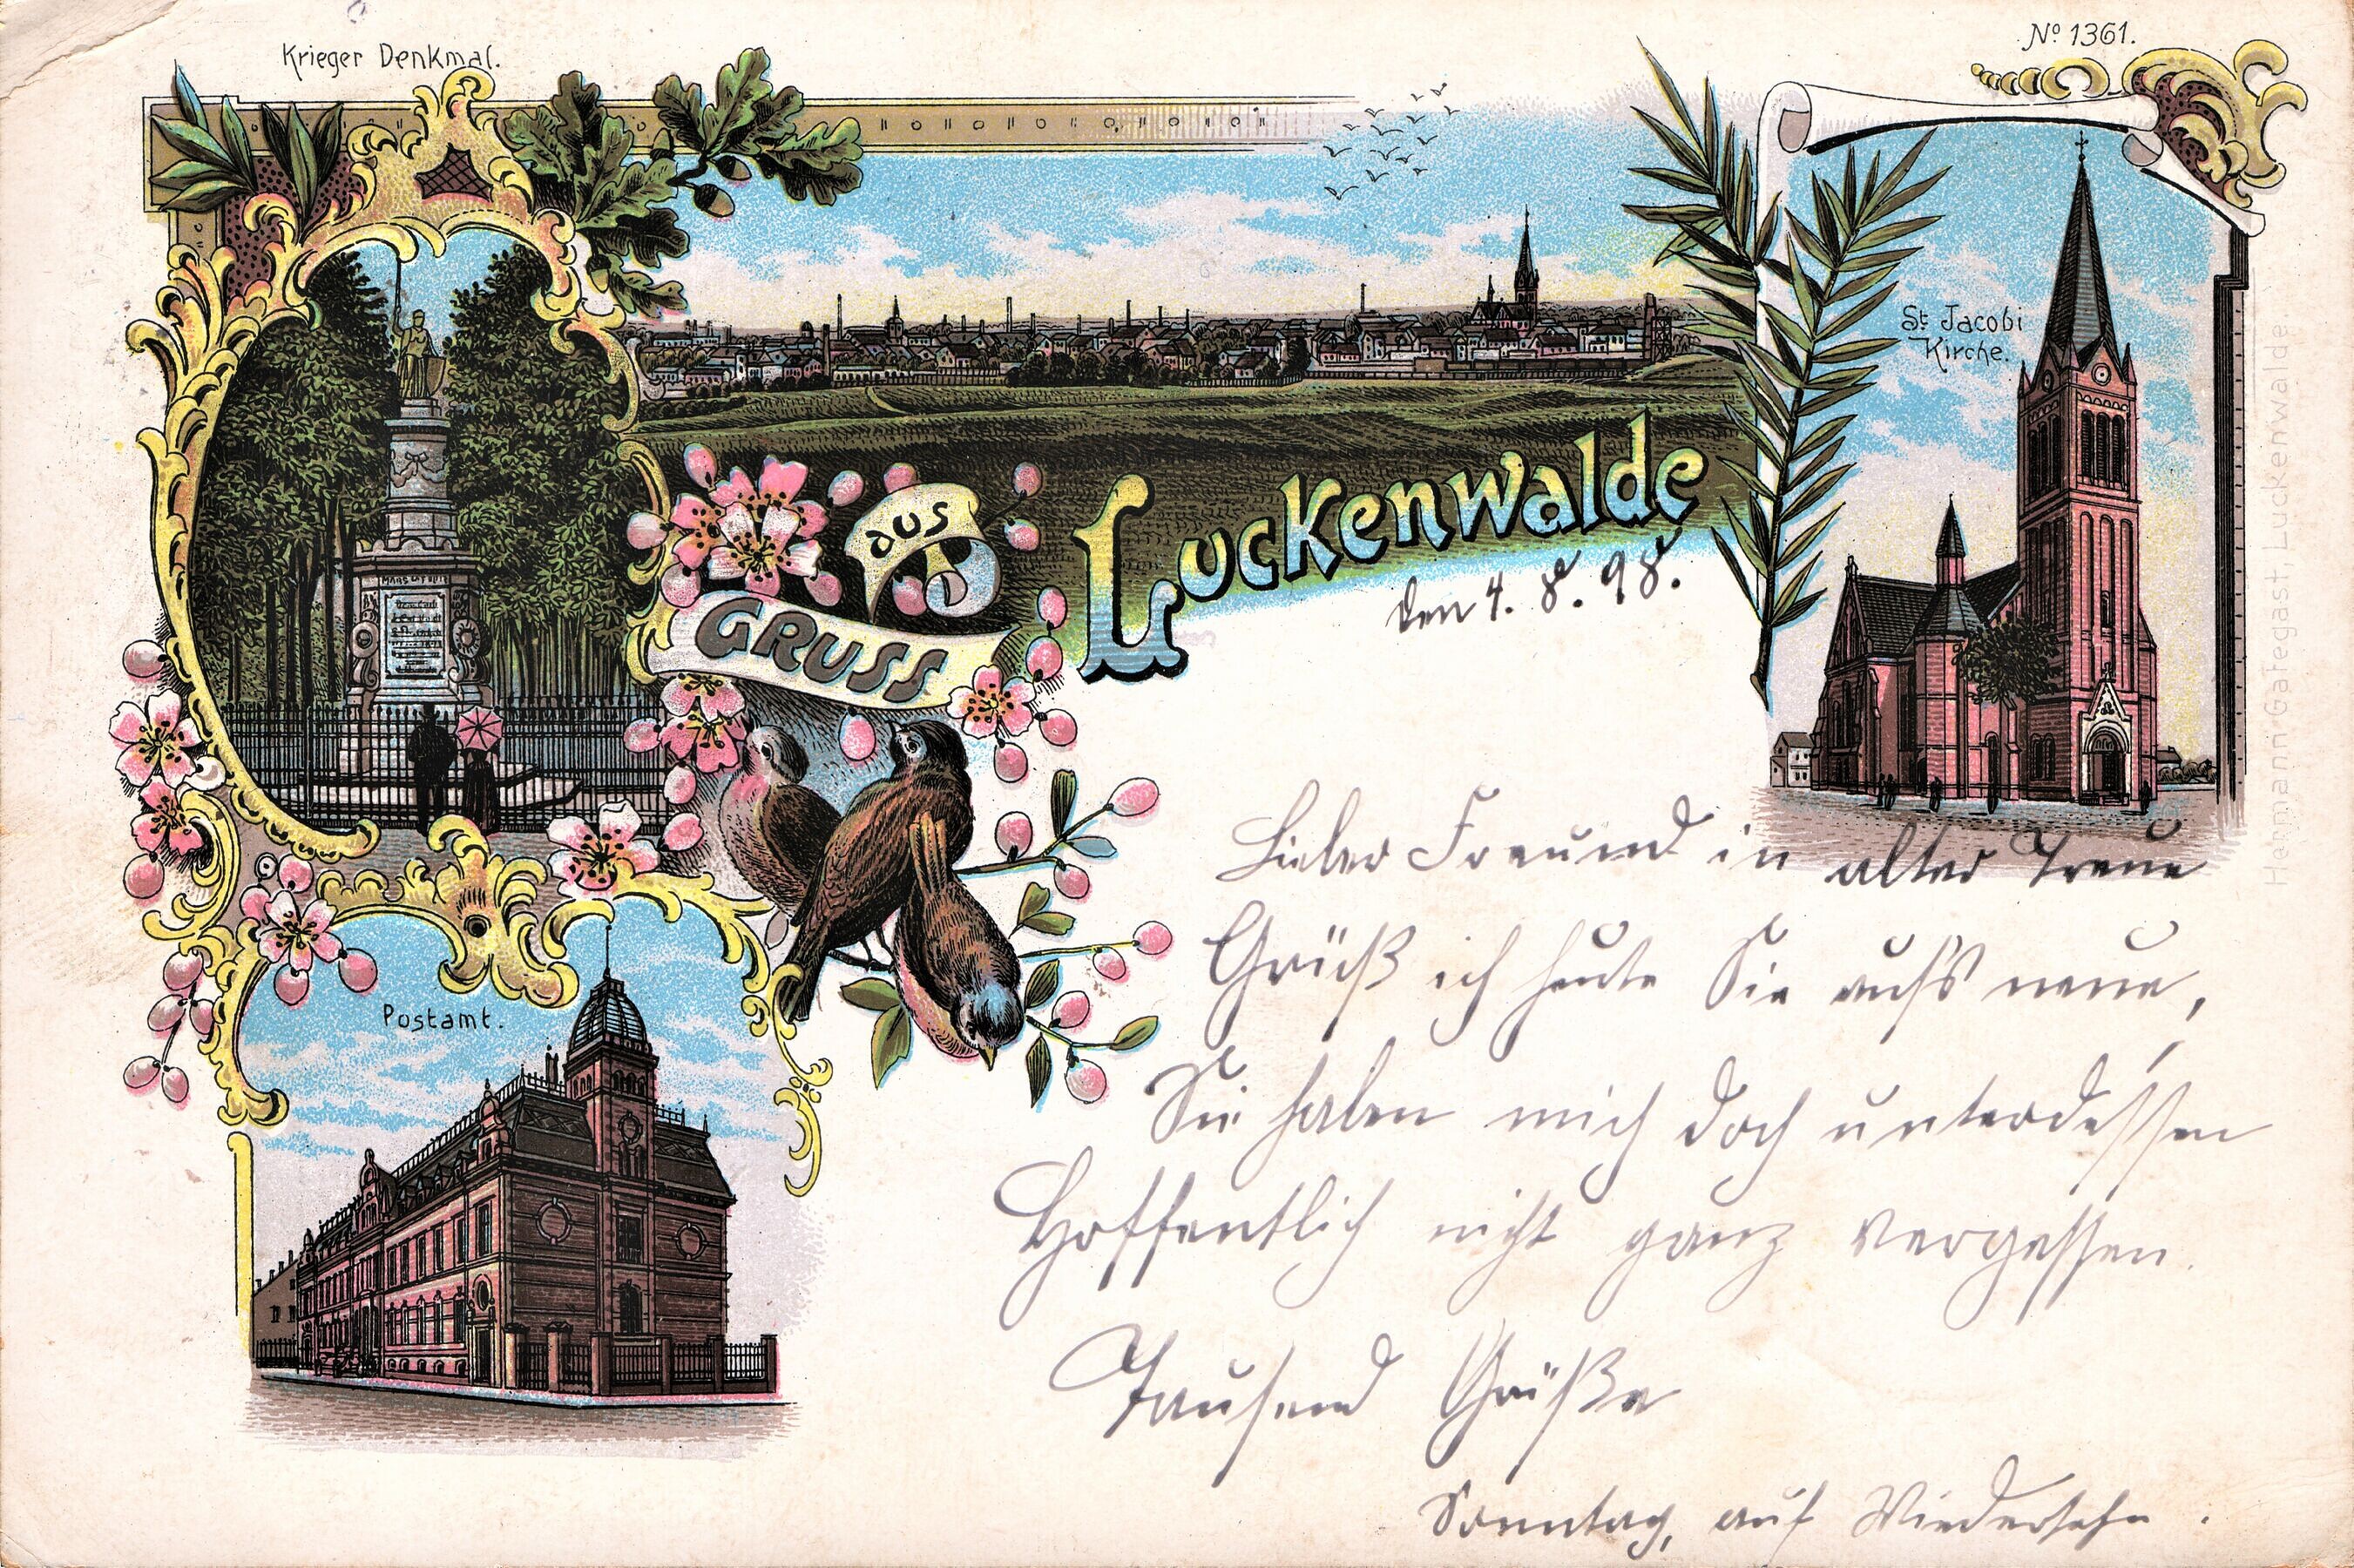 Krieger Denkmal.
No 1361.
St. Jacobi
Kirche.
GRUSS
aus
Luckenwalde
den 4. 8. 98.
Postamt.
Hermann Gategast, Luckenwalde.
Lieber Freund in alter Treue
Grüß ich heute Sie auf's neue,
Sie haben mich doch unterdessen
Hoffentlich nicht ganz vergessen.
Tausend Grüße
Sonntag, auf Wiedersehn.